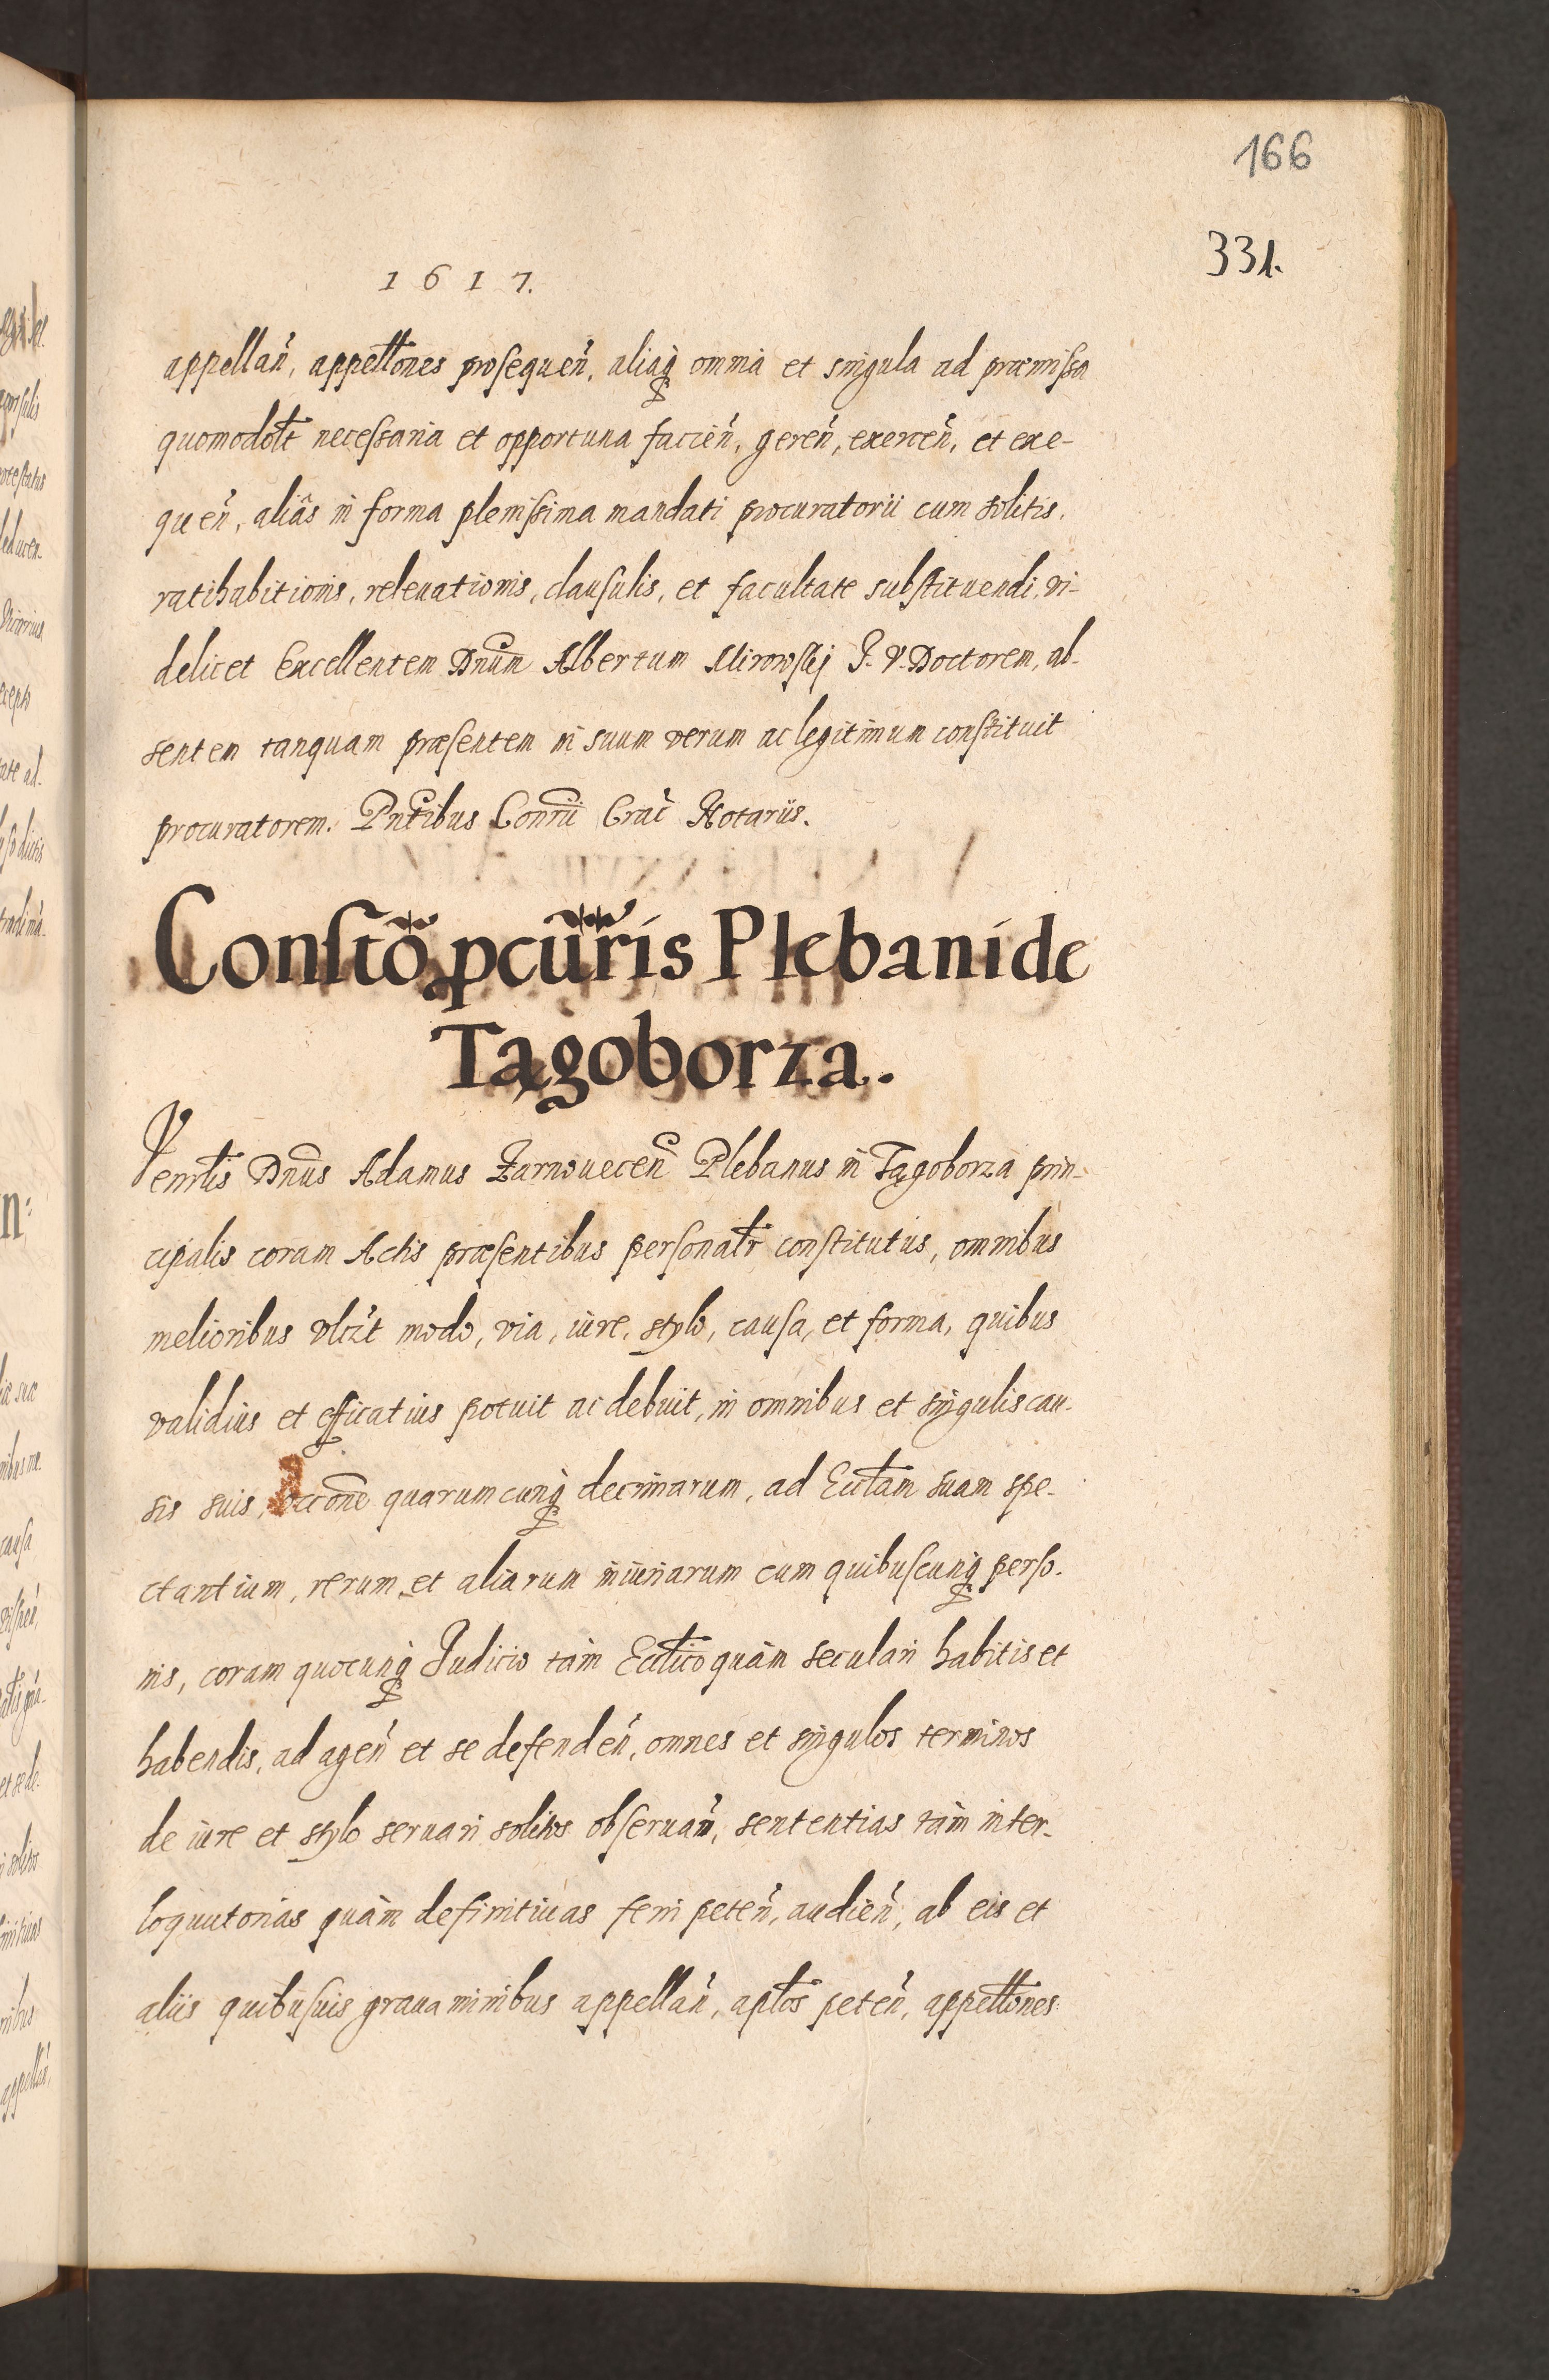 166
331.
1617.
appellań, appello̅nes prosequeń, aliaq́ꝫ omnia et singula ad præmissa
quomodolt̅ necessaria et opportuna facień, gereń, exerceń, et exe-
queń, aliâs in forma plenissima mandati procuratorii cum solitis,
ratihabitionis, releuationis, clausulis, et facultate substituendi, vi-
delicet Excellentem Dnum̅ Albertum Mirowskj J. V. Doctorem, ab-
sentem tanquam præsentem in suum verum ac legitimum constituit
procuratorem. Pnt̅ibus Conr̅ii Crac̀ Notariis.
Consto̅ pcur̅is Plebani de
Tągoborza.
Venrl̅is Dnus̅ Adamus Żarnoueceń Plebanus in Tągoborza prin-
cipalis coram Actis præsentibus personalr̅ constitutus, omnibus
melioribus vltr̀t modo, via, iùre, stylo, causa, et forma, quibus
validiùs et efficatiùs potuit ac debuit, in omnibus et singulis cau-
sis suis, occo̅ne quarumcunq́ꝫ decimarum, ad Eccl̅am suam spe-
ctantium, rerum et aliarum iniùriarum cum quibuscunq́ꝫ perso-
nis, coram quocunq́ꝫ Judicio tàm Eccl̅ico quàm seculari habitis et
habendis, ad ageń et se defendeń, omnes et singulos terminos
de iùre et stylo seruari solitos obseruań, sententias tàm inter-
loquutorias quàm definitiùas ferri peteń, audień, ab eis et
aliis quibusuis grauaminibus appellań, apl̅os peteń, appellto̅nes